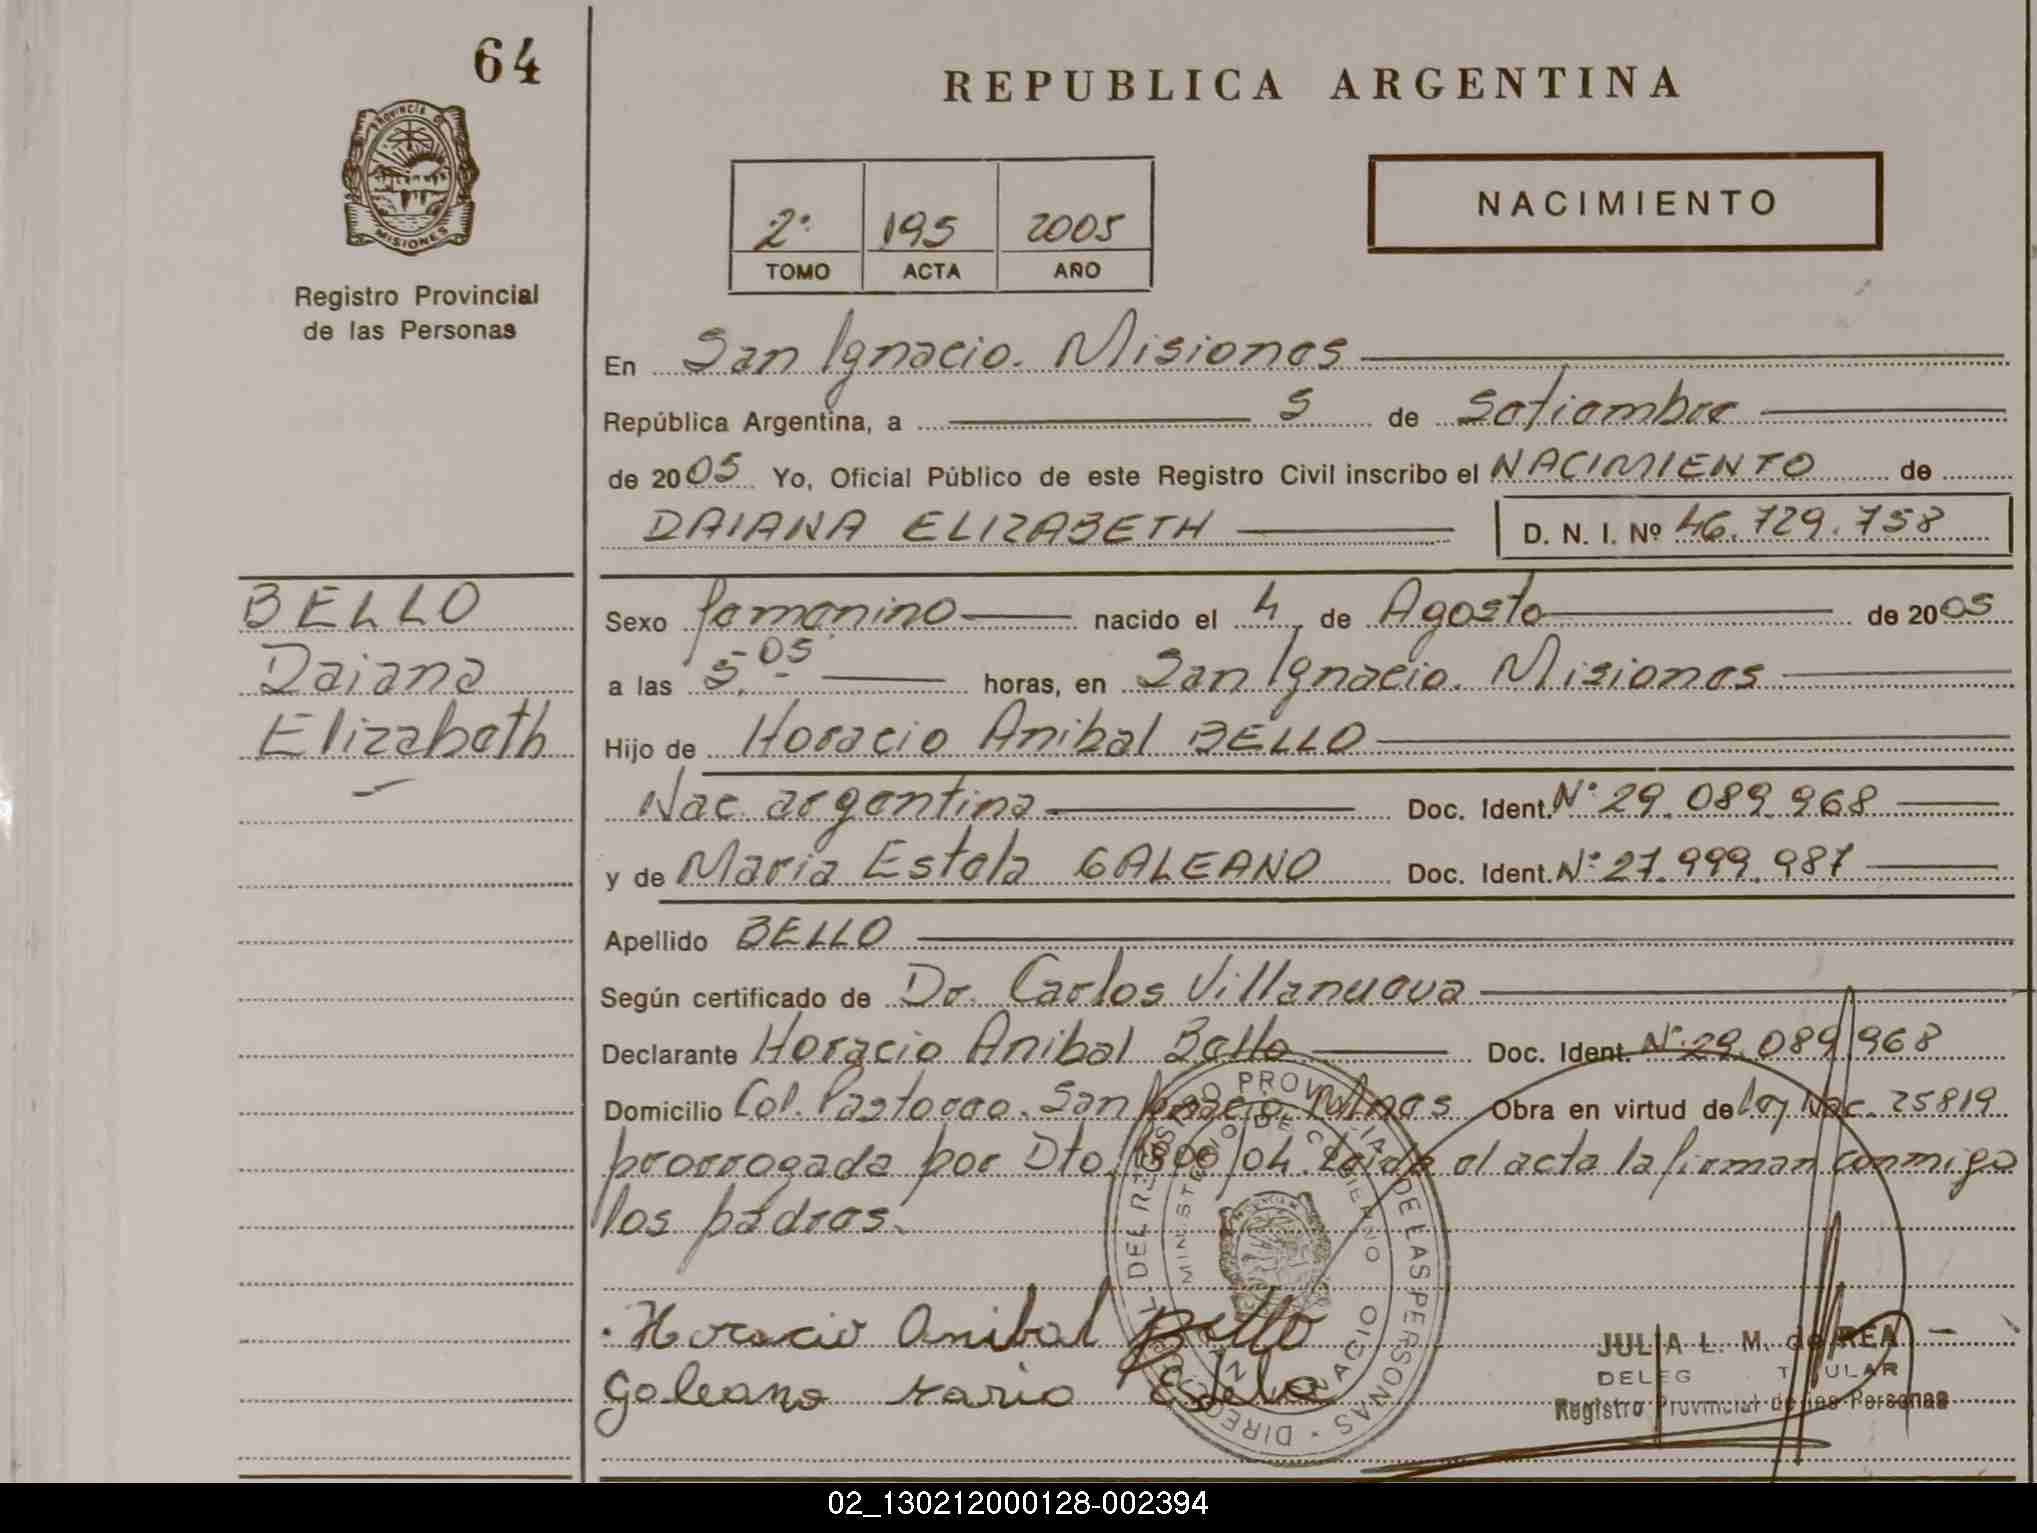 64
REPUBLICA ARGENTINA
PROVINCIA DE MISIONES
Registro Provincial
de las Personas
NACIMIENTO
2º 195 2005
TOMO ACTA AÑO
En San Ignacio. Misiones
República Argentina, a 5 de Setiembre
de 2005 Yo, Oficial Público de este Registro Civil inscribo el NACIMIENTO de
DAIANA ELIZABETH D. N. I. Nº 46.729.758
BELLO
Daiana
Elizabeth
Sexo femenino nacido el 4 de Agosto de 2005
a las 5.05 horas, en San Ignacio. Misiones
Hijo de Horacio Anibal BELLO
Nac. argentina Doc. Ident. Nº 29.089.968
y de Maria Estela GALEANO Doc. Ident. Nº 27.999.987
Apellido BELLO
Según certificado de Dr. Carlos Villanueva
Declarante Horacio Anibal Bello Doc. Ident. Nº 29.089.968
Domicilio Col. Pastoreo. San Ignacio Mnes Obra en virtud de ley Nac. 25819
prorrogada por Dto. 1800/04. Leída el acta la firman conmigo
los padres.
Horacio Anibal Bello
Galeano Maria Estela
JULIA L. M. de REA
DELEG TITULAR
Registro Provincial de las Personas
02_130212000128-002394